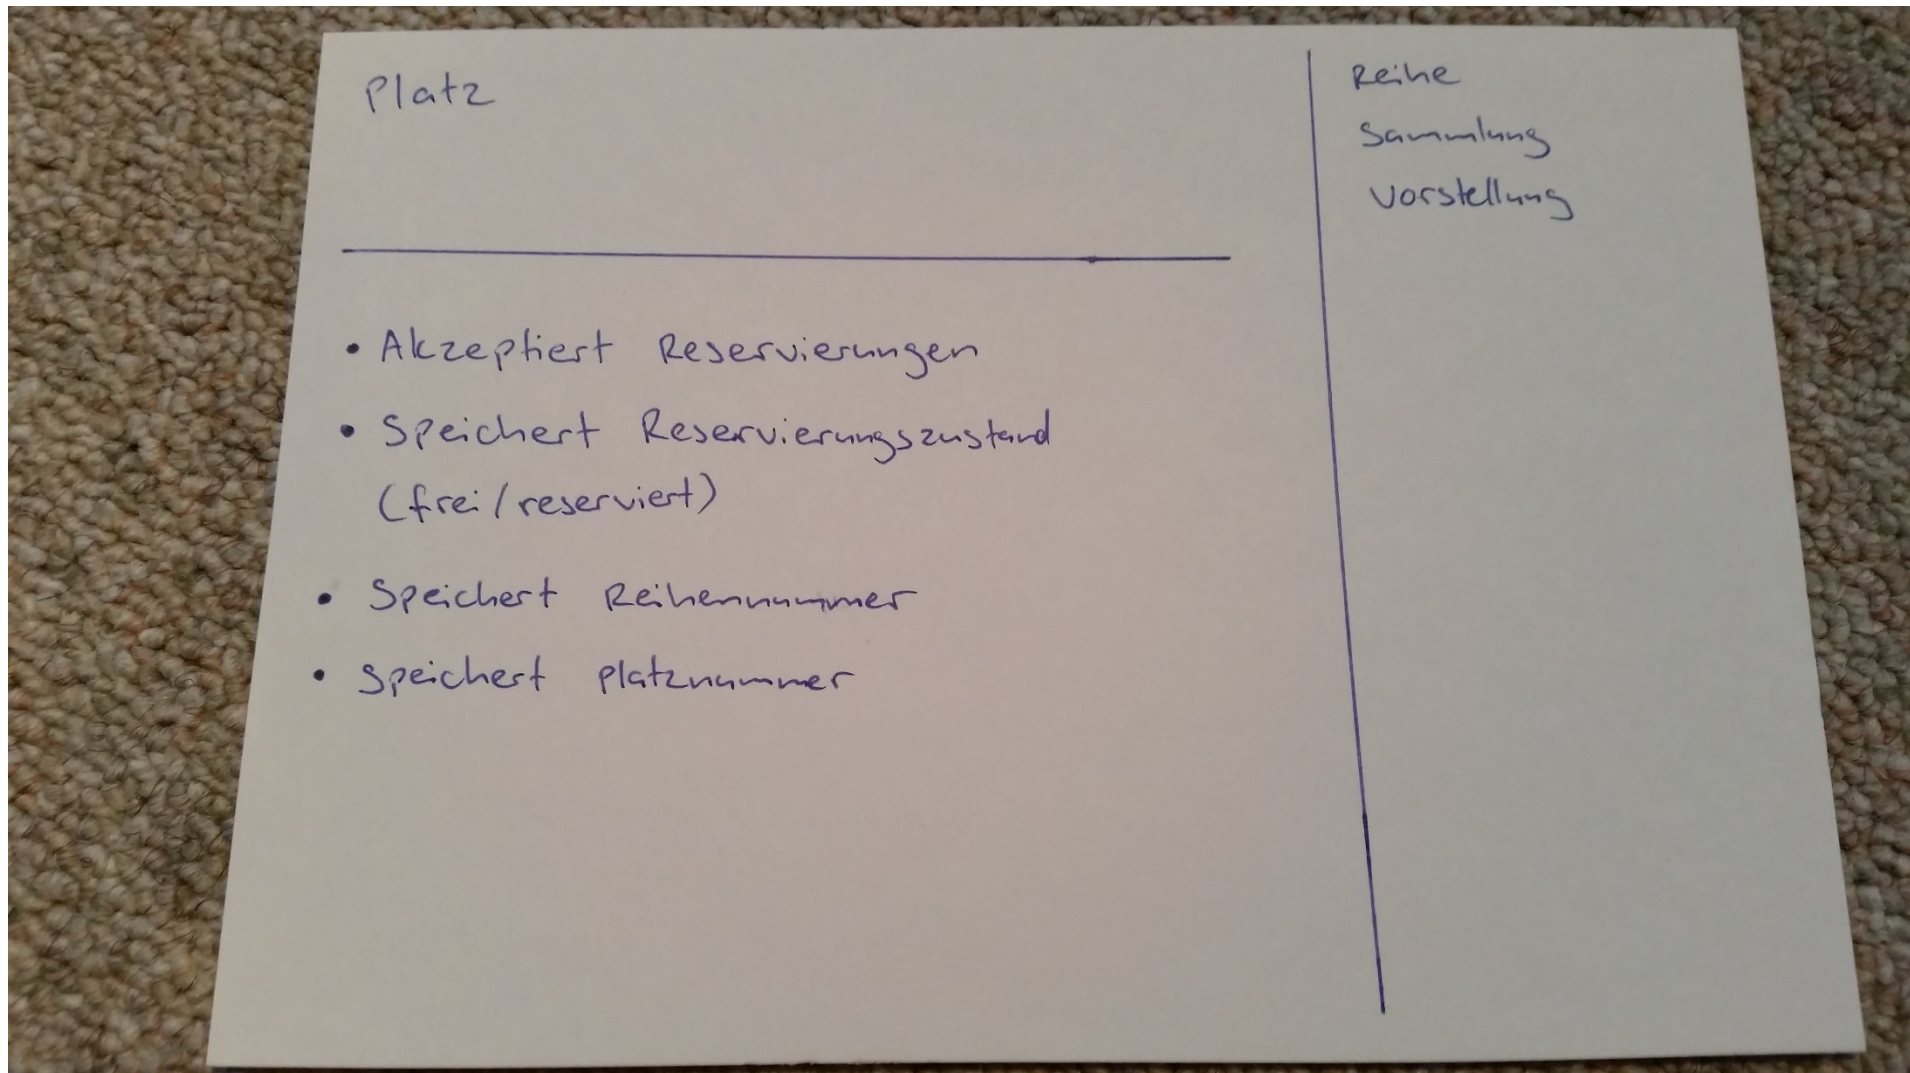 Platz
• Akzeptiert Reservierungen
• Speichert Reservierungszustand
(frei/reserviert)
• Speichert Reihennummer
• Speichert Platznummer
Reihe
Sammlung
Vorstellung